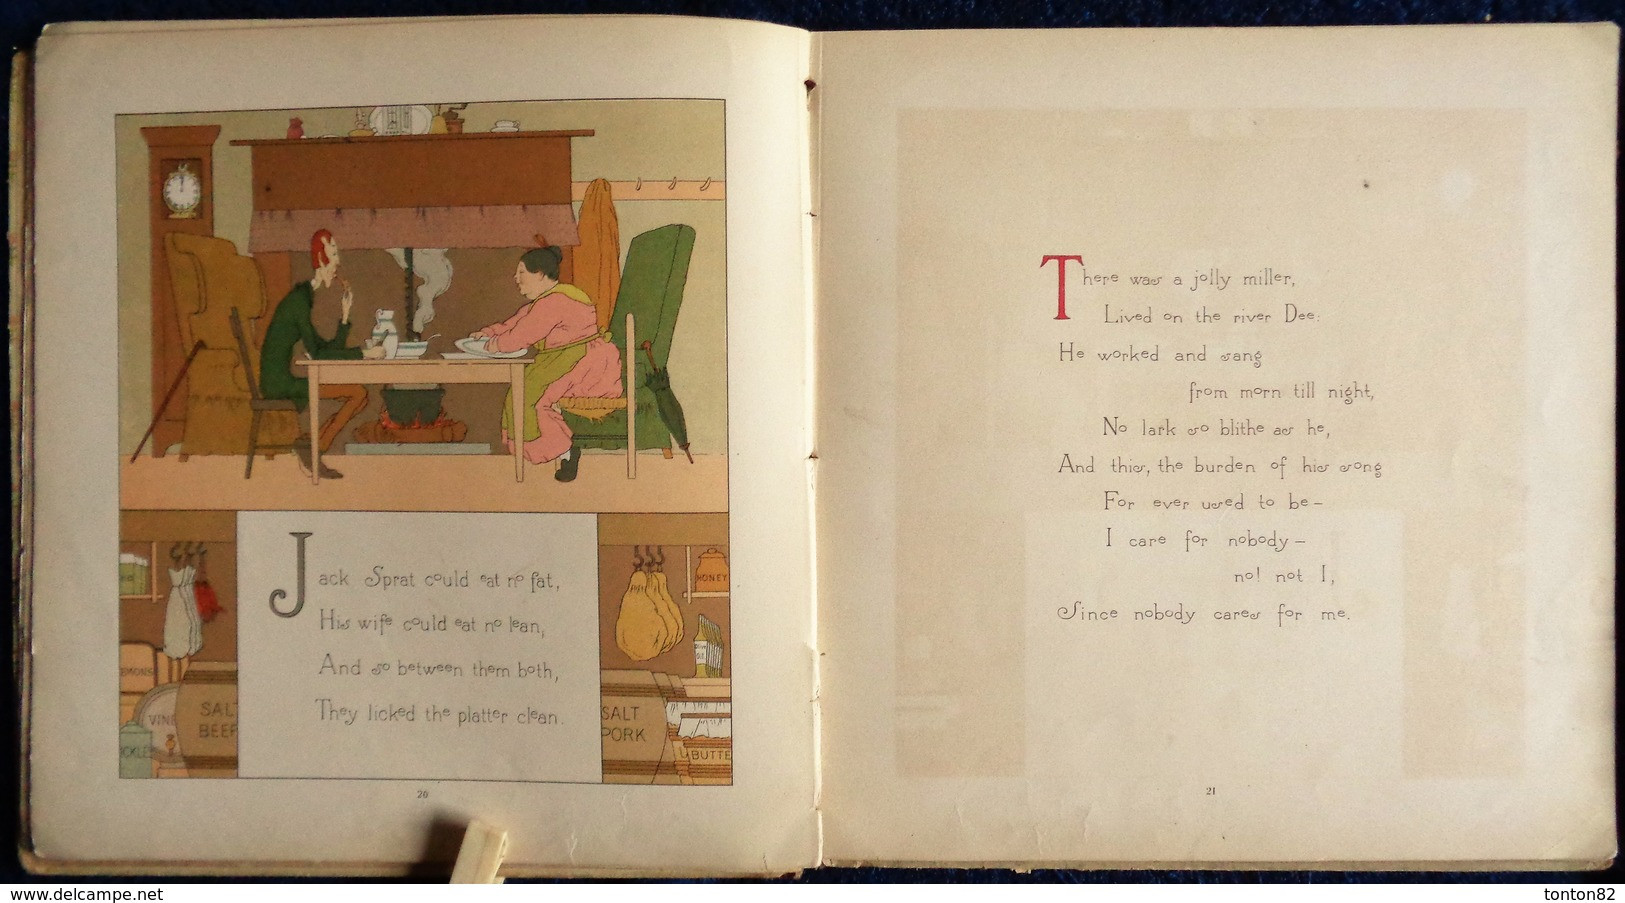 HONEY
EMONS
VINE
SALT
BEEF
ICKLE
SALT
PORK
BUTTE
Jack Sprat could eat no fat,
His wife could eat no lean,
And so between them both,
They licked the platter clean.
20
There was a jolly miller,
Lived on the river Dee:
He worked and sang
from morn till night,
No lark so blithe as he,
And this, the burden of his song
For ever used to be–
I care for nobody–
no! not I,
Since nobody cares for me.
21
www.delcampe.net
tonton82